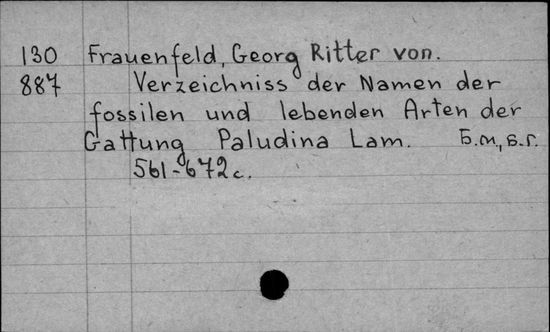 130 Frauenfeld, Georg Ritter von.
887 Verzeichniss der Namen der
fossilen und lebenden Arten der
Gattung Paludina Lam. Б.м., б.г.
561-672 с.